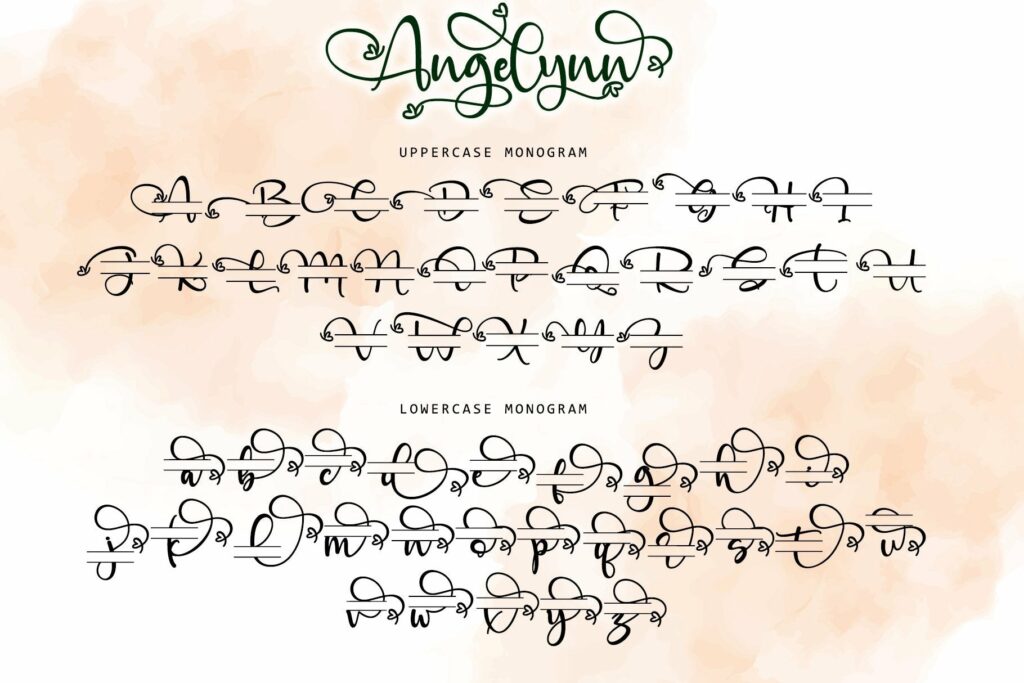 Angelynn
UPPERCASE MONOGRAM
A B C D E F G H I
J K L M N O P Q R S T U
V W X Y Z
LOWERCASE MONOGRAM
a b c d e f g h i
j k l m n o p q r s t u
v w x y z